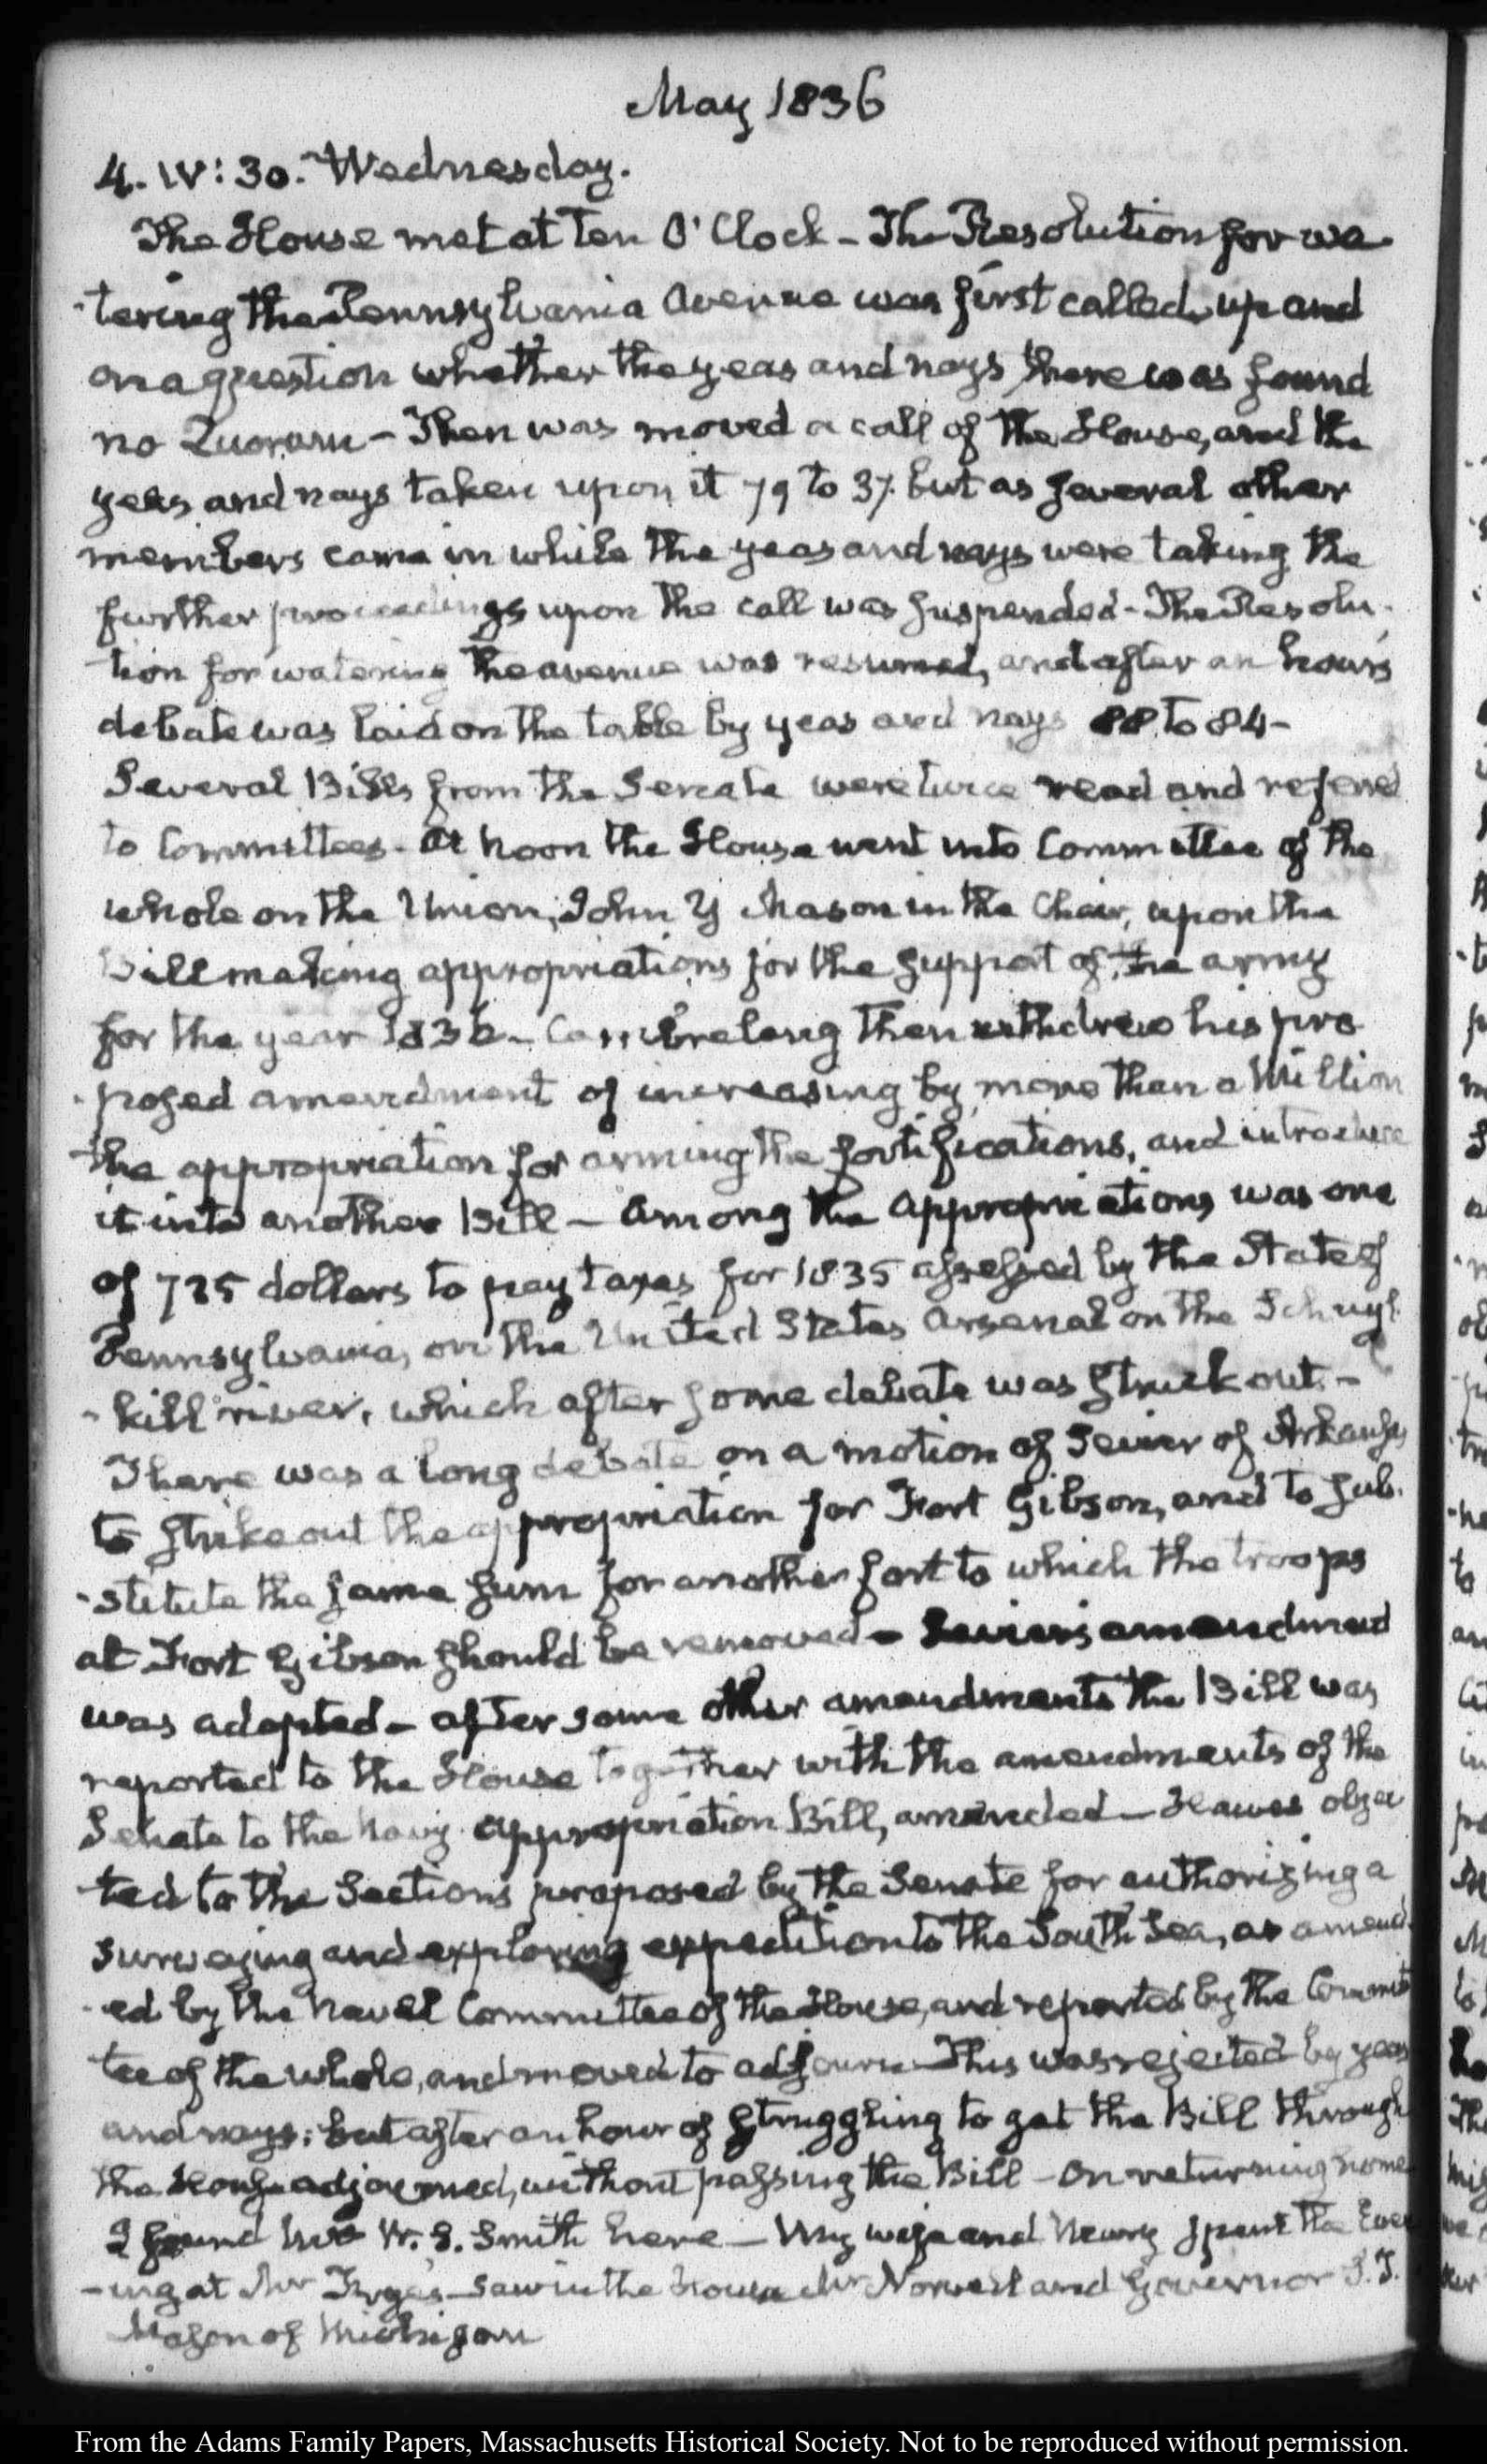 May 1836
4. IV: 30. Wednesday.
The House met at Ten O'Clock - The Resolution for wa-
-tering the Pennsylvania Avenue was first called up and
on a question whether the yeas and nays there was found
no Quorum - Then was moved a call of the House, and the
yeas and nays taken upon it 79 to 37. but as several other
members came in while the yeas and nays were taking the
further proceedings upon the call was suspended - The Resolu-
tion for watering the avenue was resumed, and after an hour's
debate was laid on the table by yeas and nays 88 to 84 -
Several Bills from the Senate were twice read and referred
to Committees - At noon the House went into Committee of the
whole on the Union, John Y Mason in the Chair, upon the
Bill making appropriations for the support of the army
for the year 1836 - Cambreleng then withdrew his pro
-posed amendment of increasing by more than a Million
the appropriation for arming the fortifications, and introduce
it into another Bill - Among the appropriations was one
of 725 dollars to pay taxes for 1835 assessed by the State of
Pennsylvania, on the United States Arsenal on the Schuyl
-kill river, which after some debate was struck out -
There was a long debate on a motion of Sevier of Arkansas
to strike out the appropriation for Fort Gibson, and to sub-
-stitute the same sum for another fort to which the troops
at Fort Gibson should be removed - Sevier's amendment
was adopted - after some other amendments the Bill was
reported to the House together with the amendments of the
Senate to the Navy appropriation Bill, amended - Hawes objec
ted to the Sections proposed by the Senate for authorizing a
surveying and exploring expedition to the South Sea, as amend-
-ed by the Naval Committee of the House, and reported by the Commit
tee of the whole, and moved to adjourn - This was rejected by yeas
and nays; but after an hour of struggling to get the Bill through
the House adjourned, without passing the Bill - On returning home
I found Mrs W. S. Smith here - My wife and Henry spent the Even
-ing at Mr Frye's - Saw in the house Mr Norvell and Governor S. T.
Mason of Michigan
From the Adams Family Papers, Massachusetts Historical Society. Not to be reproduced without permission.